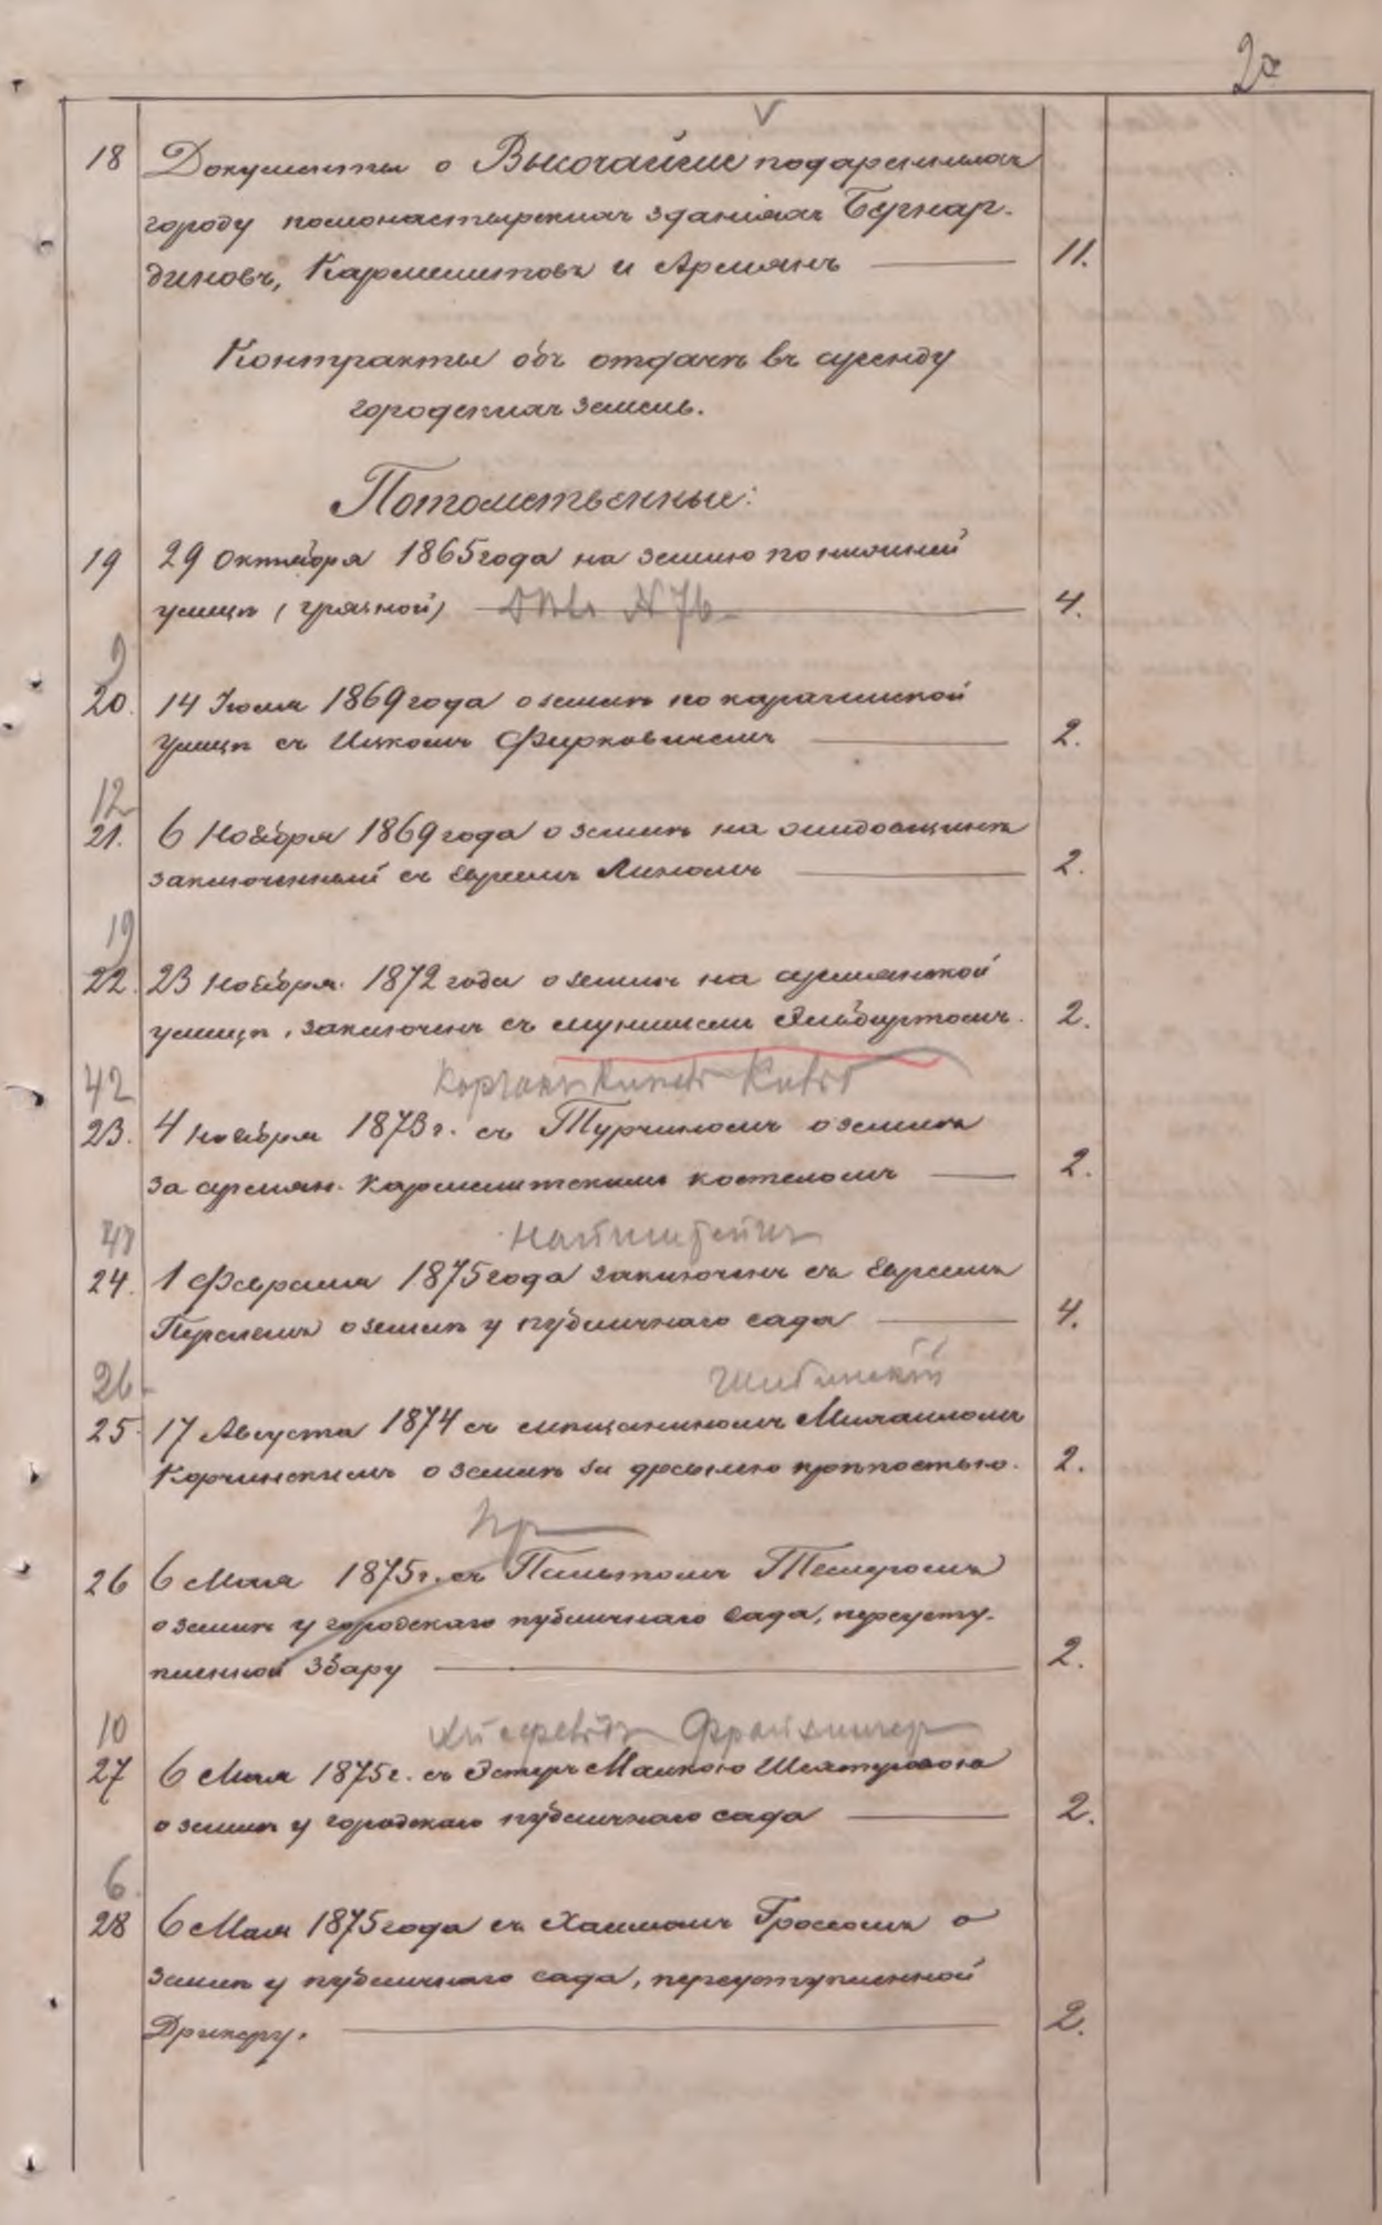 2а
18 Документы о Высочайше подаренныхъ
городу помонастырскихъ зданіяхъ Бернар-
диновъ, Кармелитовъ и Армянъ — 11.
Контракты объ отдачѣ въ аренду
городскихъ земель.
Потомственные:
19 29 Октября 1865 года на землю по
улицѣ (грязной) № 76 — 4.
9
20. 14 Іюля 1869 года о землѣ по караимской
улицѣ съ Ицкомъ Фирковичемъ — 2.
12
21. 6 Ноября 1869 года о землѣ на
заключенный съ Евреемъ — 2.
19
22. 23 Ноября 1872 года о землѣ на армянской
улицѣ, заключенъ съ Альбертомъ. 2.
42
23. 4 Ноября 1873 г. съ Турчиномъ о землѣ
за армян. Кармелитскимъ костеломъ — 2.
24. 1 Февраля 1875 года заключенъ съ Евреемъ
о землѣ у публичнаго сада — 4.
26
25 17 Августа 1874 съ мещаниномъ Михаиломъ
Корчинскимъ о землѣ за крѣпостью. 2.
26 6 Мая 1875 г. съ
о землѣ у городскаго публичнаго сада, переусту-
пленной Збару — 2.
10
27 6 Мая 1875 г. съ Эстеръ Малкою
о землѣ у городскаго публичнаго сада — 2.
6
28 6 Мая 1875 года съ Хаимомъ Гроссомъ о
землѣ у публичнаго сада, переуступленной
Дрикеру. — 2.